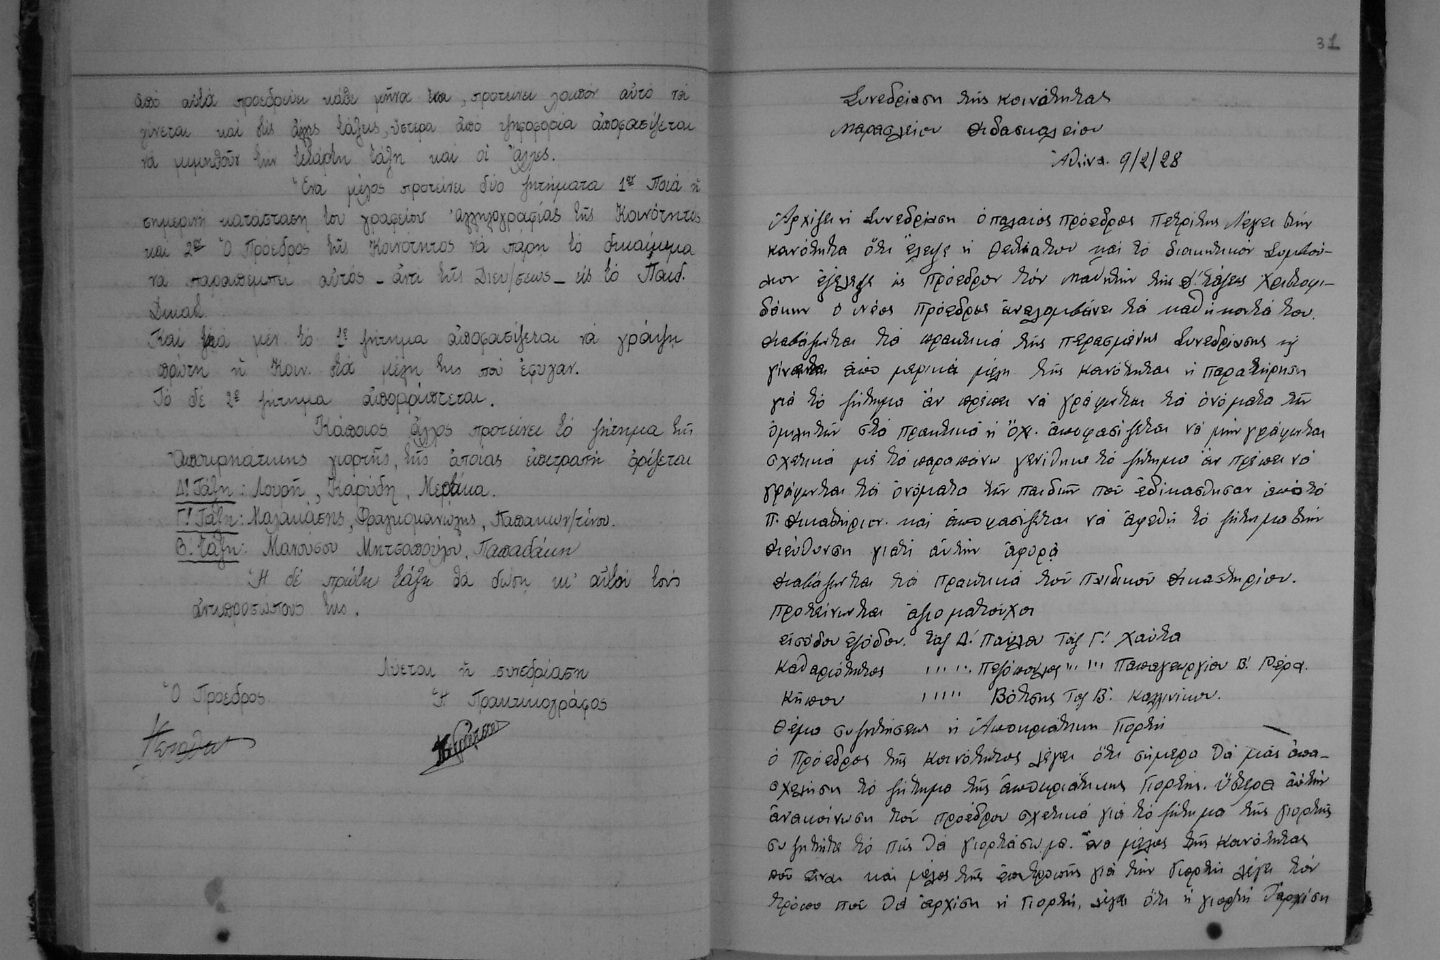 ἀπὸ αὐτὰ προεδρεύει κάθε μῆνα, προτείνει λοιπὸν αὐτὸ νὰ
γίνεται καὶ στὶς ἄλλες τάξεις, ὕστερα ἀπὸ ψηφοφορία ἀποφασίζεται
νὰ μιμηθοῦν τὴν τετάρτη τάξη καὶ οἱ ἄλλες.
Ἕνα μέλος προτείνει δύο ζητήματα 1ον Ποιὰ ἡ
σημερινὴ κατάσταση τοῦ γραφείου ἀλληλογραφίας τῆς Κοινότητος
καὶ 2ον Ὁ Πρόεδρος τῆς Κοινότητος νὰ πάρη τὸ δικαίωμα
νὰ παραπέμπη αὐτὸς - ἀντὶ τῆς Διευ/σεως - εἰς τὸ Παιδ.
Δικαστ.
Καὶ γιὰ μὲν τὸ 1ον ζήτημα ἀποφασίζεται νὰ γράψη
πρώτη ἡ Κοιν. στὰ μέλη της ποὺ ἔφυγαν.
Τὸ δὲ 2ον ζήτημα ἀπορρίπτεται.
Κάποιος ἄλλος προτείνει τὸ ζήτημα τῆς
ἀποκρηατικης γιορτῆς, τῆς ὁποίας ἐπιτροπὴ ὁρίζεται
Δ! Τάξη: Λουρῆ, Καρύδη, Μέρτικα.
Γ! Τάξη: Μαλακάσης, Φραγκομανώλης, Παπακων/τίνου.
Β. τάξη: Μανούσου Μητσοπούλου, Παπαδάκη
Ἡ δὲ πρώτη τάξη θὰ δώση κι' αὐτὴ τοὺς
ἀντιπροσώπους της.
Λύεται ἡ συνεδρίαση
Ὁ Πρόεδρος. Ἡ Πρακτικογράφος
31
Συνεδρίαση τῆς κοινότητας
Μαρασλείου Διδασκαλείου
Ἀθήνα 9/2/28
Ἀρχίζει ἡ Συνεδρίαση ὁ παλαιὸς πρόεδρος Πετρίτης λέγει στὴν
κοινότητα ὅτι ἔληξε ἡ καὶ τὸ διοικητικὸν Συμβού-
λιον ἐξέλεξε ὡς Πρόεδρον τὸν μαθητὴν τῆς δ! τάξεως Χριστοφι-
δάκην ὁ νέος Πρόεδρος ἀναλαμβάνει τὰ καθήκοντά του.
Διαβάζονται τὰ πρακτικὰ τῆς περασμένης Συνεδρίασης κι
γίνεται ἀπὸ μερικὰ μέλη τῆς κοινότητας ἡ παρατήρηση
γιὰ τὸ ζήτημα ἂν πρέπει νὰ γράφωνται τὰ ὀνόματα τῶν
ὁμιλητῶν στὰ πρακτικὰ ἢ ὄχι. ἀποφασίζεται νὰ μὴν γράφωνται
σχετικὰ μὲ τὸ παραπάνω γενήθηκε τὸ ζήτημα ἂν πρέπει νὰ
γράφωνται τὰ ὀνόματα τῶν παιδιῶν ποῦ ἐδικάσθησαν ἀπὸ τὸ
Π. Δικαστήριον. καὶ ἀποφασίζεται νὰ ἀφεθῆ τὸ ζήτημα στὴν
Διεύθυνση γιατὶ αὐτὴν ἀφορᾷ
Διαβάζονται τὰ πρακτικὰ τοῦ παιδικοῦ Δικαστηρίου.
Προτείνωνται ἀξιοματοῦχοι
εἰσόδου ἐξόδου. τάξ Δ! Παύλου Τάξ Γ! Χαύτα
Καθαριότητος " " Πεζόπουλος " " Παπαγεωργίου Β! Ρέρα.
Κήπου " " Βότσης Τάξ Β! Καλλινίκου.
Θέμα συζητήσεως ἡ Ἀποκριάτικη Γιορτή
ὁ Πρόεδρος τῆς Κοινότητος λέγει ὅτι σήμερα θὰ μᾶς ἀπα-
σχολήση τὸ ζήτημα τῆς ἀποκριάτικης Γιορτῆς. Ὕστερα ἀπ' τὴν
ἀνακοίνωση τοῦ προέδρου σχετικὰ γιὰ τὸ ζήτημα τῆς γιορτῆς
συζητῆται τὸ πῶς θὰ γιορτάσωμε. Ἕνα μέλος τῆς Κοινότητας
ποῦ εἶναι καὶ μέλος τῆς ἐπιτροπῆς γιὰ τὴν Γιορτὴ λέγει τὸν
τρόπο ποῦ θὰ ἀρχίση ἡ Γιορτή, λέγει ὅτι ἡ γιορτὴ θ'ἀρχίση